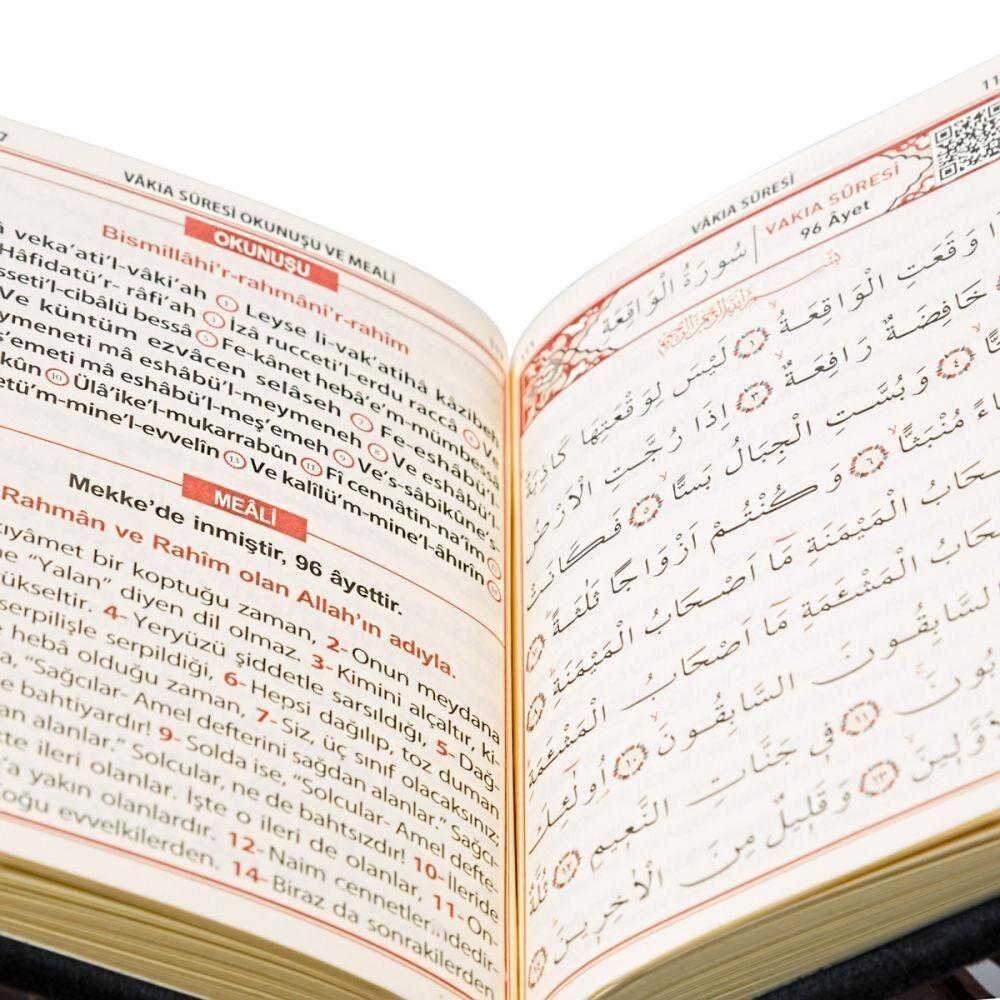 VÂKIA SÛRESİ OKUNUŞU VE MEALİ
OKUNUŞU
Bismillâhi'r-rahmâni'r-rahîm
veka'ati'l-vâki'ah ① Leyse li-vak'atihâ kâzibeh
Hâfidatü'r- râfi'ah ③ İzâ rucceti'l-erdu raccâ ④ Ve
sseti'l-cibâlü bessâ ⑤ Fe-kânet hebâ'e'm-mümbessâ
Ve küntüm ezvâcen selâseh ⑦ Fe-eshâbü'l-
ymeneti mâ eshâbü'l-meymeneh ⑧ Ve eshâbü'l-
ş'emeti mâ eshâbü'l-meş'emeh ⑨ Ve's-sâbikûne's-
kûn ⑩ Ülâ'ike'l-mukarrabûn ⑪ Fî cennâtin-na'îm ⑫
etü'm-mine'l-evvelîn ⑬ Ve kalîlü'm-mine'l-âhırîn ⑭
MEÂLİ
Mekke'de inmiştir, 96 âyettir.
Rahmân ve Rahîm olan Allah'ın adıyla.
kıyâmet bir koptuğu zaman, 2- Onun meydana
ne "Yalan" diyen dil olmaz. 3- Kimini alçaltır, ki-
yükseltir. 4- Yeryüzü şiddetle sarsıldığı, 5- Dağ-
serpilişle serpildiği, 6- Hepsi dağılıp, toz duman
heba olduğu zaman, 7- Siz, üç sınıf olacaksınız;
"Sağcılar- Amel defterini sağdan alanlar." Sağcı-
e bahtiyardır! 9- Solda ise, "Solcular- Amel defte-
an alanlar." Solcular, ne de bahtsızdır! 10- İleride
şte ileri olanlar. İşte o ileri de olanlar, 11- On-
'a yakın olanlardır. 12- Naim cennetlerindedir-
Çoğu evvelkilerden. 14- Biraz da sonrakilerden
VÂKIA SÛRESİ
VAKIA SÛRESİ
96 Âyet
سُورَةُ الْوَاقِعَةِ
بِسْمِ اللّٰهِ الرَّحْمٰنِ الرَّحِيمِ
وَقَعَتِ الْوَاقِعَةُ ﴿١﴾ لَيْسَ لِوَقْعَتِهَا كَاذِبَةٌ
خَافِضَةٌ رَافِعَةٌ ﴿٣﴾ اِذَا رُجَّتِ الْاَرْضُ
﴿٤﴾ وَبُسَّتِ الْجِبَالُ بَسًّا ﴿٥﴾ فَكَانَتْ
مُنْبَثًّا ﴿٦﴾ وَكُنْتُمْ اَزْوَاجًا ثَلٰثَةً ﴿٧﴾
حَابُ الْمَيْمَنَةِ مَٓا اَصْحَابُ الْمَيْمَنَةِ ﴿٨﴾
حَابُ الْمَشْـَٔمَةِ مَٓا اَصْحَابُ الْمَشْـَٔمَةِ
السَّابِقُونَ السَّابِقُونَ ﴿١٠﴾ اُولٰٓئِكَ
بُونَ ﴿١١﴾ فِي جَنَّاتِ النَّعِيمِ ﴿١٢﴾ ثُلَّةٌ
وَّلِينَ ﴿١٣﴾ وَقَلِيلٌ مِنَ الْاٰخِرِينَ ﴿١٤﴾